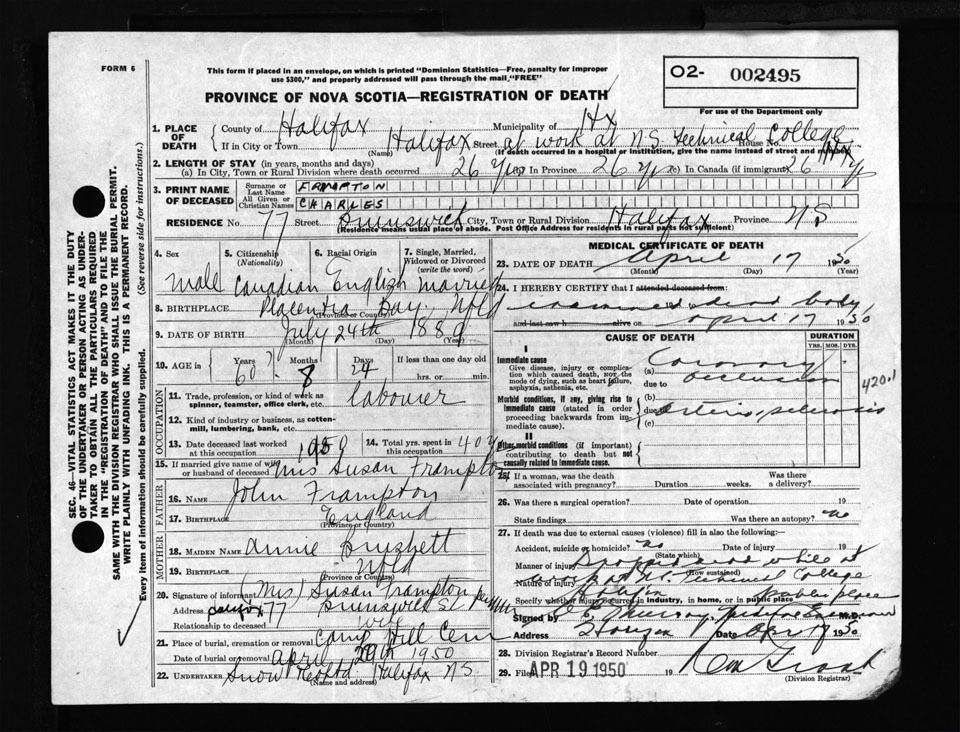 FORM 6
This form if placed in an envelope, on which is printed "Dominion Statistics—Free, penalty for improper
use $300," and properly addressed will pass through the mail "FREE"
O2- 002495
For use of the Department only
PROVINCE OF NOVA SCOTIA—REGISTRATION OF DEATH
1. PLACE OF DEATH { County of Halifax Municipality of Hx
If in City or Town Halifax Street at work at N.S. Technical College House No.
(Name) (If death occurred in a hospital or institution, give the name instead of street and
2. LENGTH OF STAY (in years, months and days)
(a) In City, Town or Rural Division where death occurred 26 yrs (b) In Province 26 yrs (c) In Canada (if immigrant) 26 yrs
3. PRINT NAME OF DECEASED { Surname or Last Name FRAMPTON
All Given or Christian Names CHARLES
RESIDENCE No. 77 Street Brunswick City, Town or Rural Division Halifax Province NS
(Residence means usual place of abode. Post Office Address for residents in rural parts not sufficient)
4. Sex 5. Citizenship (Nationality) 6. Racial Origin 7. Single, Married, Widowed or Divorced (write the word)
Male Canadian English Married
8. BIRTHPLACE Placentia Bay, Nfld
(Province or Country)
9. DATE OF BIRTH July 24th 1889
(Month) (Day) (Year)
10. AGE in { Years 60 Months 8 Days 24 If less than one day old hrs. or min.
OCCUPATION
11. Trade, profession, or kind of work as spinner, teamster, office clerk, etc. labourer
12. Kind of industry or business, as cotton-mill, lumbering, bank, etc.
13. Date deceased last worked at this occupation 14. Total yrs. spent in this occupation 40 yrs
15. If married give name of wife or husband of deceased Mrs Susan Frampton
FATHER
16. NAME John Frampton
17. BIRTHPLACE England
(Province or Country)
MOTHER
18. MAIDEN NAME Annie
19. BIRTHPLACE Nfld
(Province or Country)
20. Signature of informant (Mrs) Susan Frampton
Address Halifax 77 Brunswick St
Relationship to deceased wife
21. Place of burial, cremation or removal Camp Hill Cem
Date of burial or removal April 1950
22. UNDERTAKER Snow Halifax NS
(Name and address)
MEDICAL CERTIFICATE OF DEATH
23. DATE OF DEATH April 17 1950
(Month) (Day) (Year)
24. I HEREBY CERTIFY that I attended deceased from:
examined dead body
and last saw h alive on April 17 1950
CAUSE OF DEATH DURATION
YRS. MOS. DYS.
I
Immediate cause
Give disease, injury or complication which caused death, NOT the mode of dying, such as heart failure, asphyxia, asthenia, etc.
(a) Coronary
due to occlusion
420.1
Morbid conditions, if any, giving rise to immediate cause (stated in order proceeding backwards from immediate cause).
(b)
due to Arterio sclerosis
(c)
II
Other morbid conditions (if important) contributing to death but not causally related to immediate cause.
25. If a woman, was the death associated with pregnancy? Duration weeks. Was there a delivery?
26. Was there a surgical operation? Date of operation 19
State findings Was there an autopsy? no
27. If death was due to external causes (violence) fill in also the following:—
Accident, suicide or homicide? no Date of injury 19
(State which)
Manner of injury Dropped dead while at
(How sustained)
Nature of injury work at N.S. Technical College
Specify whether injury occurred in industry, in home, or in public place public place
Halifax
Signed by Medical Examiner M.D.
Address Date April 17 1950
28. Division Registrar's Record Number
29. Filed APR 19 1950 19
(Division Registrar)
SEC. 46—VITAL STATISTICS ACT MAKES IT THE DUTY
OF THE UNDERTAKER OR PERSON ACTING AS UNDER-
TAKER TO OBTAIN ALL THE PARTICULARS REQUIRED
IN THE "REGISTRATION OF DEATH" AND TO FILE THE
SAME WITH THE DIVISION REGISTRAR WHO SHALL ISSUE THE BURIAL PERMIT.
WRITE PLAINLY WITH UNFADING INK. THIS IS A PERMANENT RECORD.
Every item of information should be carefully supplied. (See reverse side for instructions.)